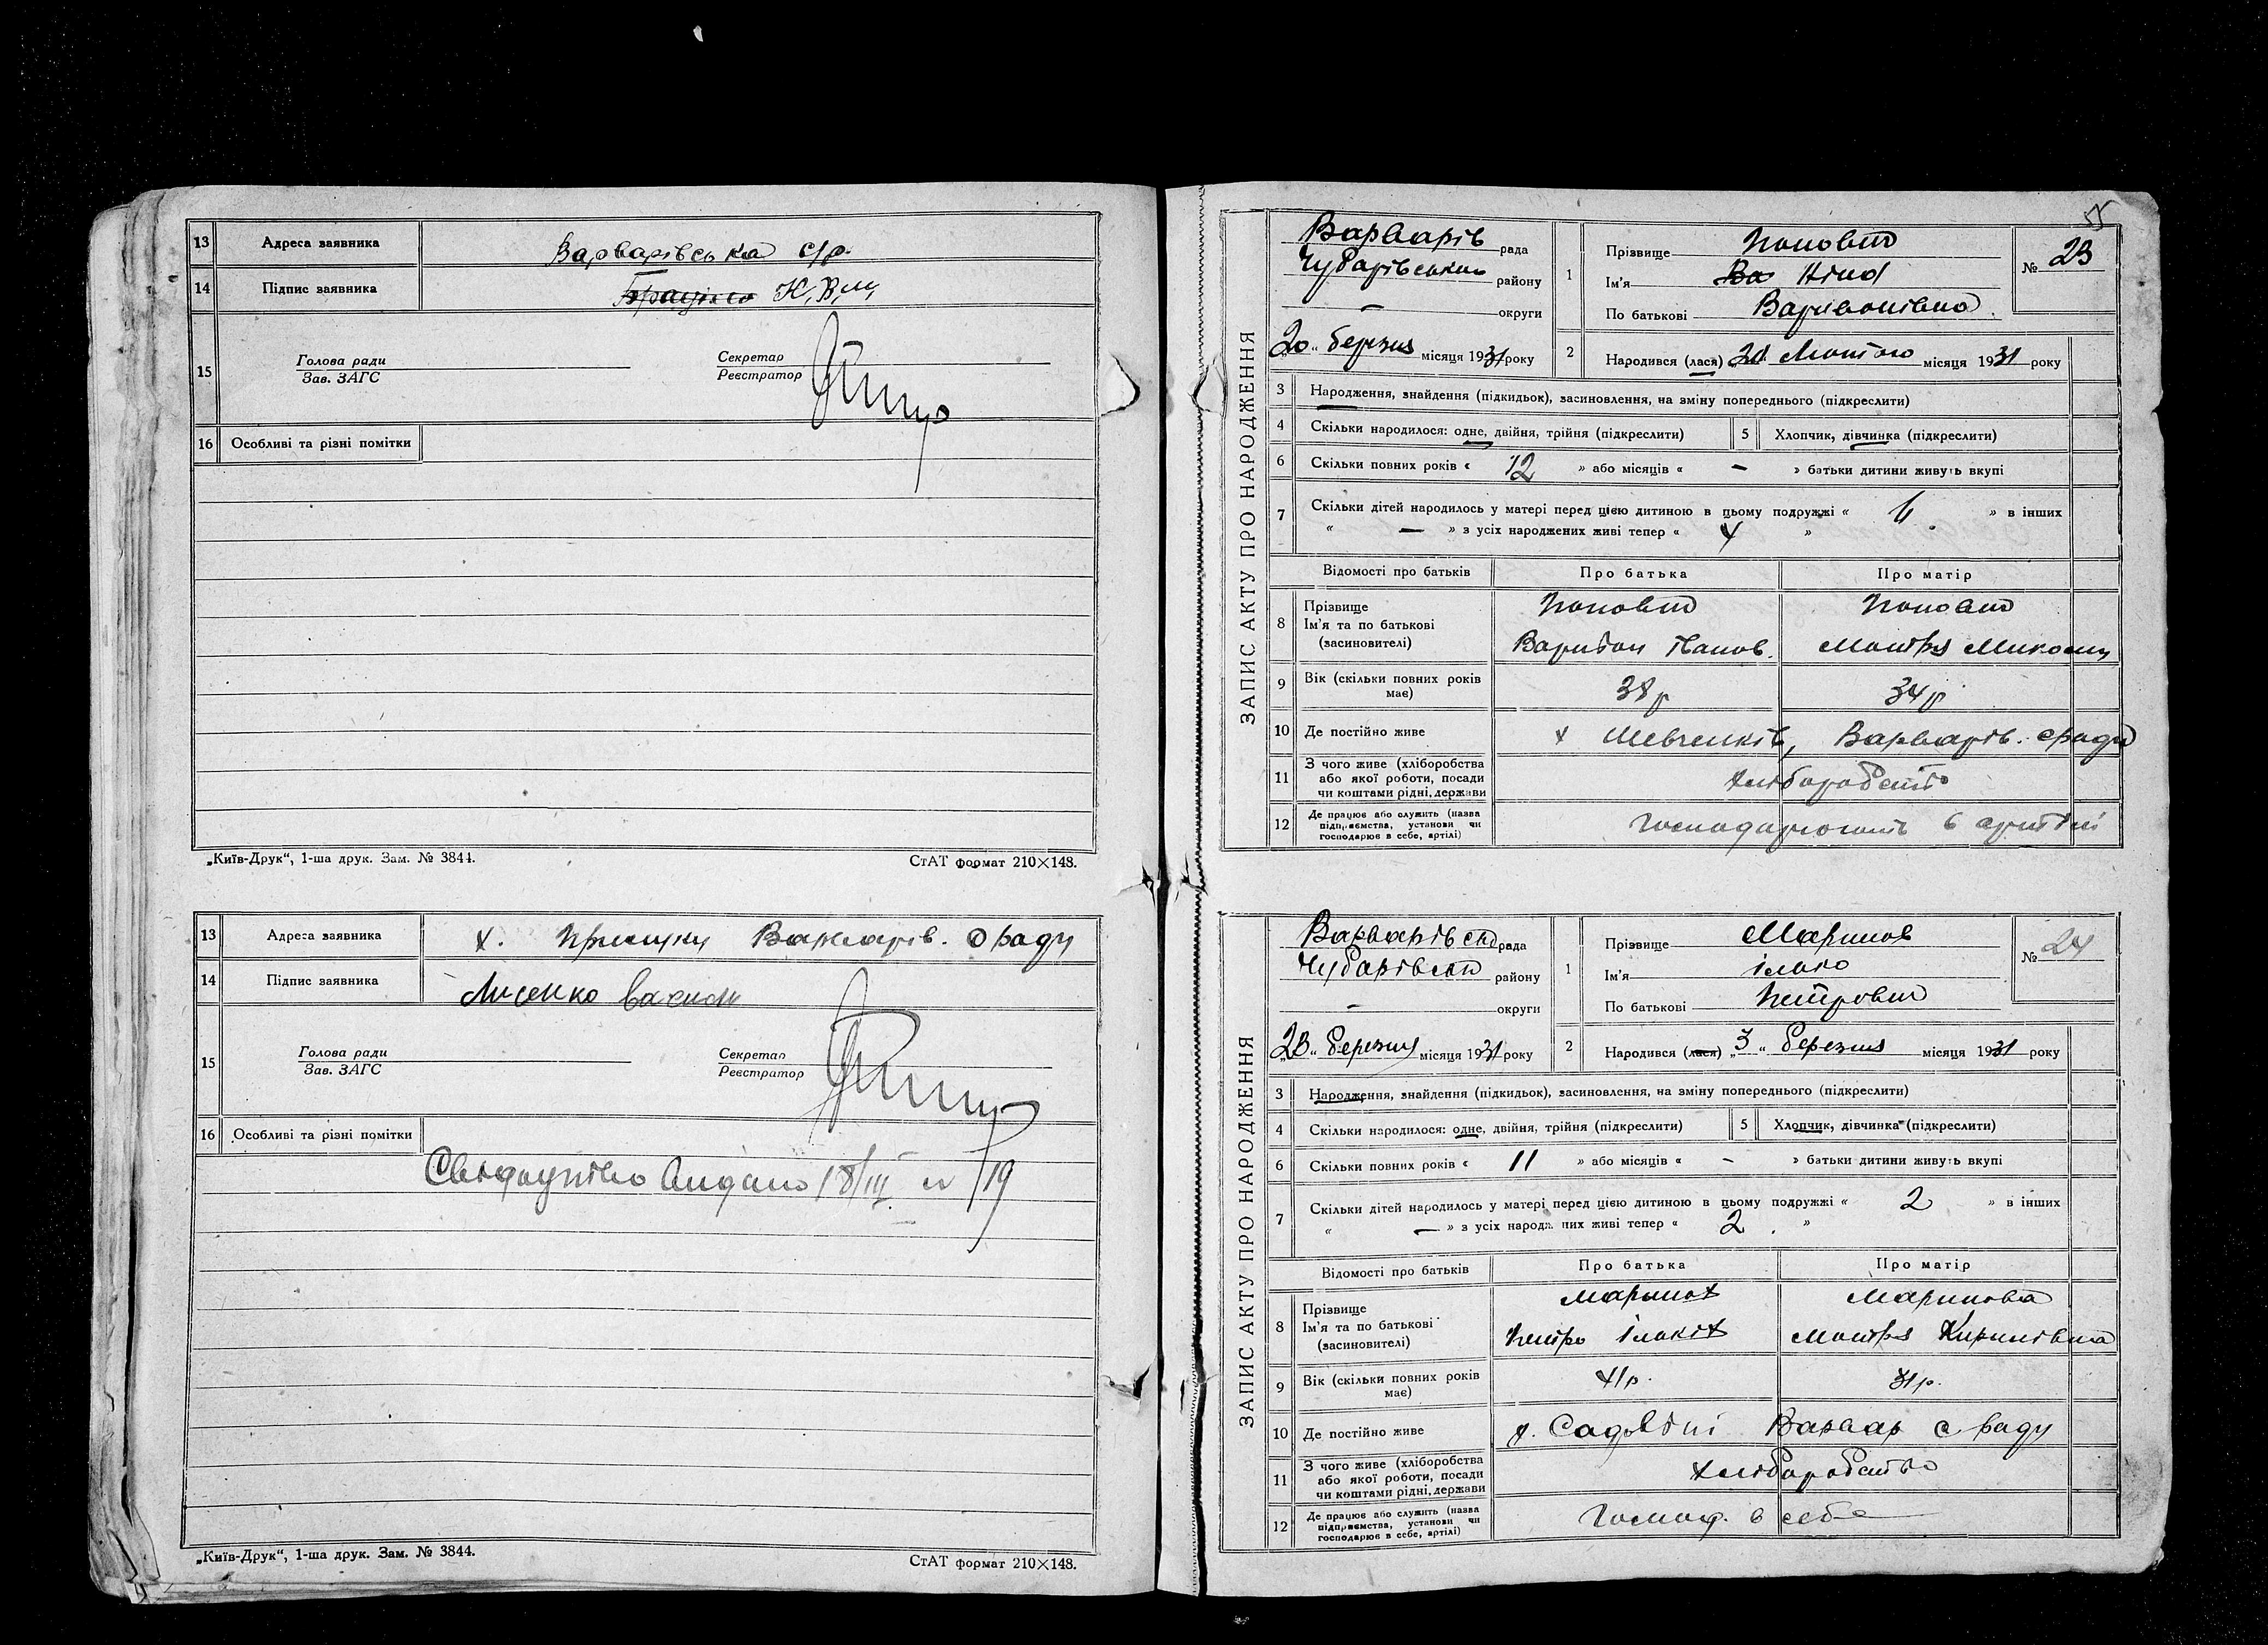 13 Адреса заявника Варварівська с/р.
14 Підпис заявника К.
15 Голова ради Секретар
Зав. ЗАГС Реєстратор
16 Особливі та різні помітки
„Київ-Друк“, 1-ша друк. Зам. № 3844. СтАТ формат 210×148.
13 Адреса заявника х. Варварів. с раду
14 Підпис заявника Лисенко
15 Голова ради Секретар
Зав. ЗАГС Реєстратор
16 Особливі та різні помітки
Свідоцтво видано 18/III за № 19
„Київ-Друк“, 1-ша друк. Зам. № 3844. СтАТ формат 210×148.
55
ЗАПИС АКТУ ПРО НАРОДЖЕННЯ
Варварів рада
Чубарівським району
— округи
„20“ березня місяця 1931 року
1 Прізвище Попович
Ім'я Ва Ніна
По батькові Варивонівна
№ 23
2 Народився (лася) Лютого місяця 1931 року
3 Народження, знайдення (підкидьок), засиновлення, на зміну попереднього (підкреслити)
4 Скільки народилося: одне, двійня, трійня (підкреслити) 5 Хлопчик, дівчинка (підкреслити)
6 Скільки повних років « 12 » або місяців « — » батьки дитини живуть вкупі
7 Скільки дітей народилось у матері перед цією дитиною в цьому подружжі « 6 » в інших
« — » з усіх народжених живі тепер « 4 »
Відомості про батьків Про батька Про матір
8 Прізвище Попович Попович
Ім'я та по батькові
(засиновителі) Варивон Панов. Мотря Микол
9 Вік (скільки повних років має) 38 р 34 р
10 Де постійно живе х Шевченків, Варварів. с ради
11 З чого живе (хліборобства
або якої роботи, посади
чи коштами рідні, держави
хліборобство
12 Де працює або служить (назва
підприємства, установи чи
господарює в себе, артілі)
господарюють в артілі
ЗАПИС АКТУ ПРО НАРОДЖЕННЯ
Варварівська рада
Чубарівськ району
— округи
„23“ березня місяця 1931 року
1 Прізвище Маринов
Ім'я Ілько
По батькові Петрович
№ 24
2 Народився (лася) „3“ березня місяця 1931 року
3 Народження, знайдення (підкидьок), засиновлення, на зміну попереднього (підкреслити)
4 Скільки народилося: одне, двійня, трійня (підкреслити) 5 Хлопчик, дівчинка (підкреслити)
6 Скільки повних років « 11 » або місяців « — » батьки дитини живуть вкупі
7 Скільки дітей народилось у матері перед цією дитиною в цьому подружжі « 2 » в інших
« — » з усіх народжених живі тепер « 2 »
Відомості про батьків Про батька Про матір
8 Прізвище Маринов Маринова
Ім'я та по батькові
(засиновителі) Петро Ільків Мотря Кирилівна
9 Вік (скільки повних років має) 41 р. 31 р.
10 Де постійно живе х. Садовині Варвар с раду
11 З чого живе (хліборобства
або якої роботи, посади
чи коштами рідні, держави
хліборобство
12 Де працює або служить (назва
підприємства, установи чи
господарює в себе, артілі)
Господ. в себе